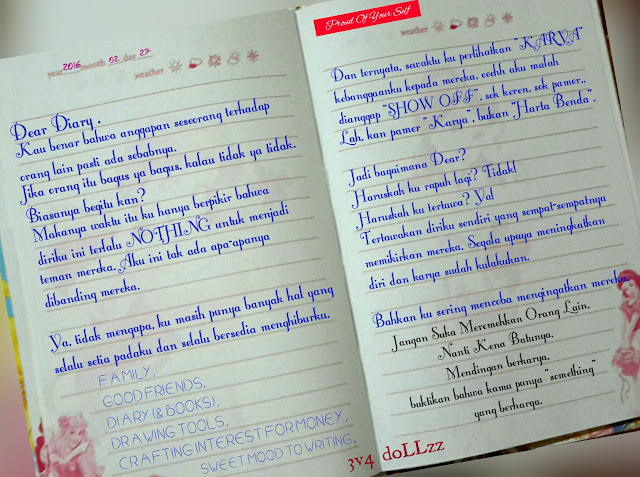 year 2016 month 02 day 27
weather
Dear Diary,
Kau benar bahwa anggapan seseorang terhadap
orang lain pasti ada sebabnya.
Jika orang itu bagus ya bagus, kalau tidak ya tidak.
Biasanya begitu kan?
Makanya waktu itu ku hanya berpikir bahwa
diriku ini terlalu NOTHING untuk menjadi
teman mereka. Aku ini tak ada apa-apanya
dibanding mereka.
Ya, tidak mengapa, ku masih punya banyak hal yang
selalu setia padaku dan selalu bersedia menghiburku.
FAMILY,
GOOD FRIENDS,
DIARY (& BOOKS),
DRAWING TOOLS,
CRAFTING INTEREST FOR MONEY,
SWEET MOOD TO WRITING.
Proud Of Your Self
weather
Dan ternyata, sewaktu ku perlihatkan "KARYA"
kebanggaanku kepada mereka, eeehh aku malah
dianggap "SHOW OFF", sok keren, sok pamer..
Lah, kan pamer "Karya", bukan "Harta Benda".
Jadi bagaimana Dear?
Haruskah ku rapuh lagi? Tidak!
Haruskah ku tertawa? Ya!
Tertawakan diriku sendiri yang sempat-sempatnya
memikirkan mereka. Segala upaya meningkatkan
diri dan karya sudah kulakukan.
Bahkan ku sering mencoba mengingatkan mereka,
Jangan Suka Meremehkan Orang Lain,
Nanti Kena Batunya,
Mendingan berkarya,
buktikan bahwa kamu punya "something"
yang berharga.
3v4 doLLzz